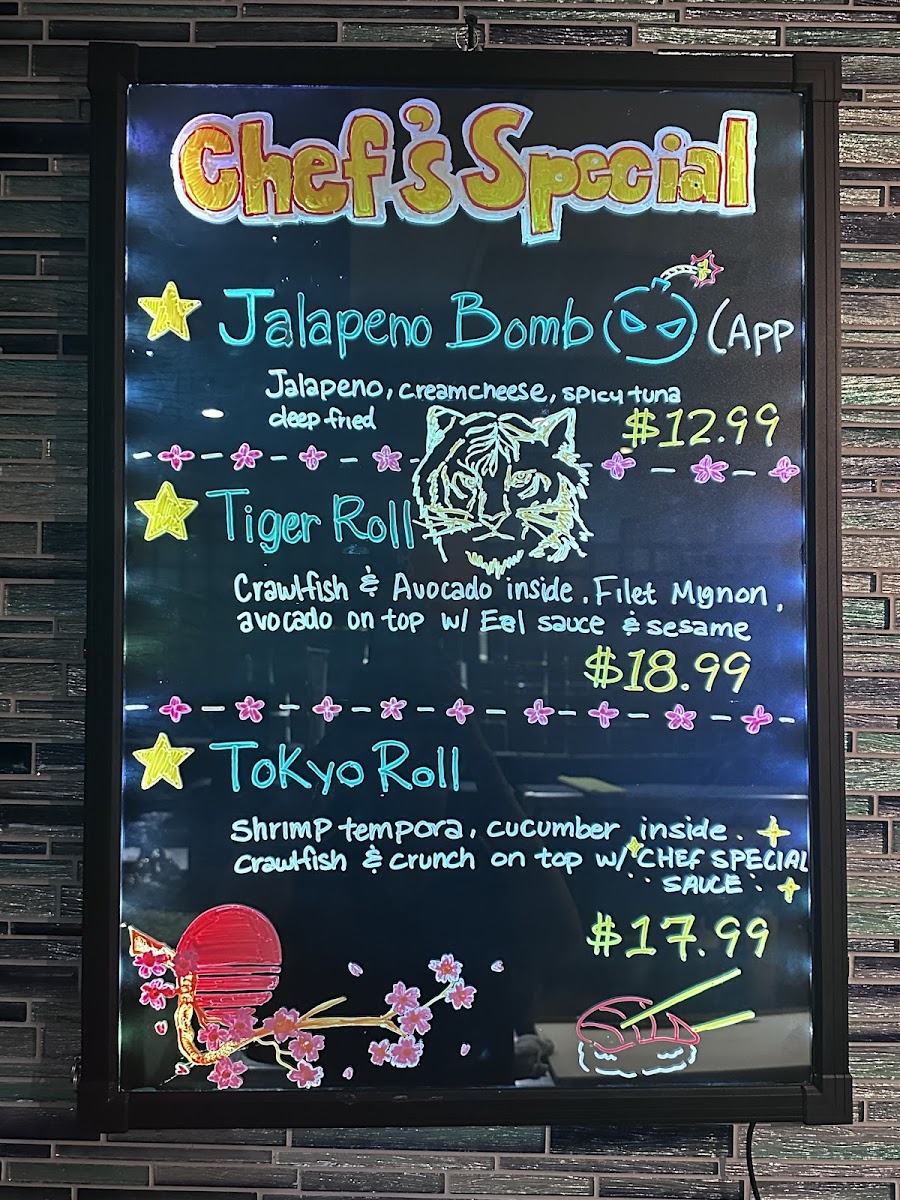 Chef's Special
Jalapeno Bomb (App
Jalapeno, creamcheese, spicy tuna
deep fried
$12.99
Tiger Roll
Crawfish & Avocado inside. Filet Mignon,
avocado on top w/ Eel sauce & sesame
$18.99
Tokyo Roll
Shrimp tempora, cucumber inside.
crawfish & crunch on top w/ CHEF SPECIAL
SAUCE
$17.99